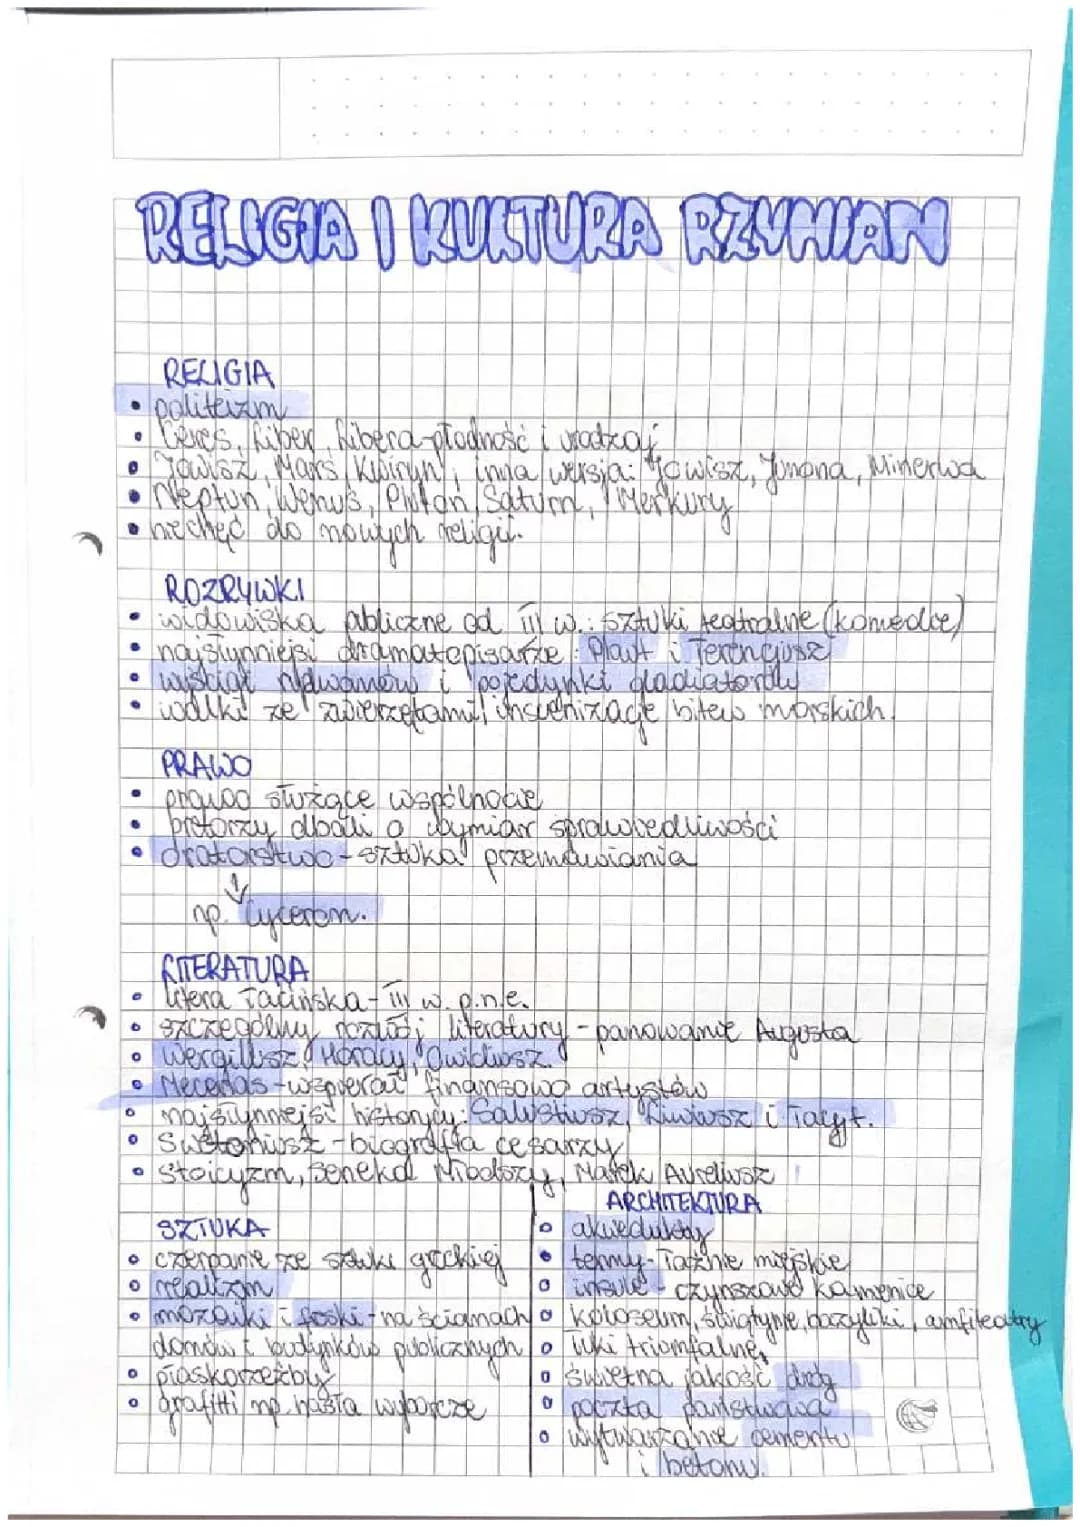 RELIGIA I KULTURA RZYMIAN
RELIGIA
• politeizm
• Ceres, Liber, Libera - płodność i urodzaj
• Jowisz, Mars, Kwiryn, inna wersja: Jowisz, Junona, Minerwa
• Neptun, Wenus, Pluton, Saturn, Merkury
• niechęć do nowych religii.
ROZRYWKI
• widowiska publiczne od III w.: sztuki teatralne (komedie)
• najsłynniejsi dramatopisarze: Plaut i Terencjusz
• wyścigi rydwanów i pojedynki gladiatorów
• walki ze zwierzętami, inscenizacje bitew morskich.
PRAWO
• prawo służące wspólnocie
• pretorzy dbali o wymiar sprawiedliwości
• oratorstwo - sztuka przemawiania
↓
np. Cyceron.
LITERATURA
• litera łacińska - III w. p.n.e.
• szczególny rozwój literatury - panowanie Augusta
• Wergiliusz, Horacy, Owidiusz.
• Mecenas - wspierał finansowo artystów
• najsłynniejsi historycy: Salustiusz, Liwiusz i Tacyt.
• Swetoniusz - biografia cesarzy
• stoicyzm, Seneka Młodszy, Marek Aureliusz
SZTUKA
• czerpanie ze sztuki greckiej
• realizm
• mozaiki i freski - na ścianach
domów i budynków publicznych
• płaskorzeźby
• grafitti np. hasła wyborcze
ARCHITEKTURA
• akwedukty
• termy - łaźnie miejskie
• insule - czynszowe kamienice
• koloseum, świątynie, bazyliki, amfiteatry
• łuki triumfalne,
• świetna jakość dróg
• poczta państwowa
• wytwarzanie cementu
i betonu.